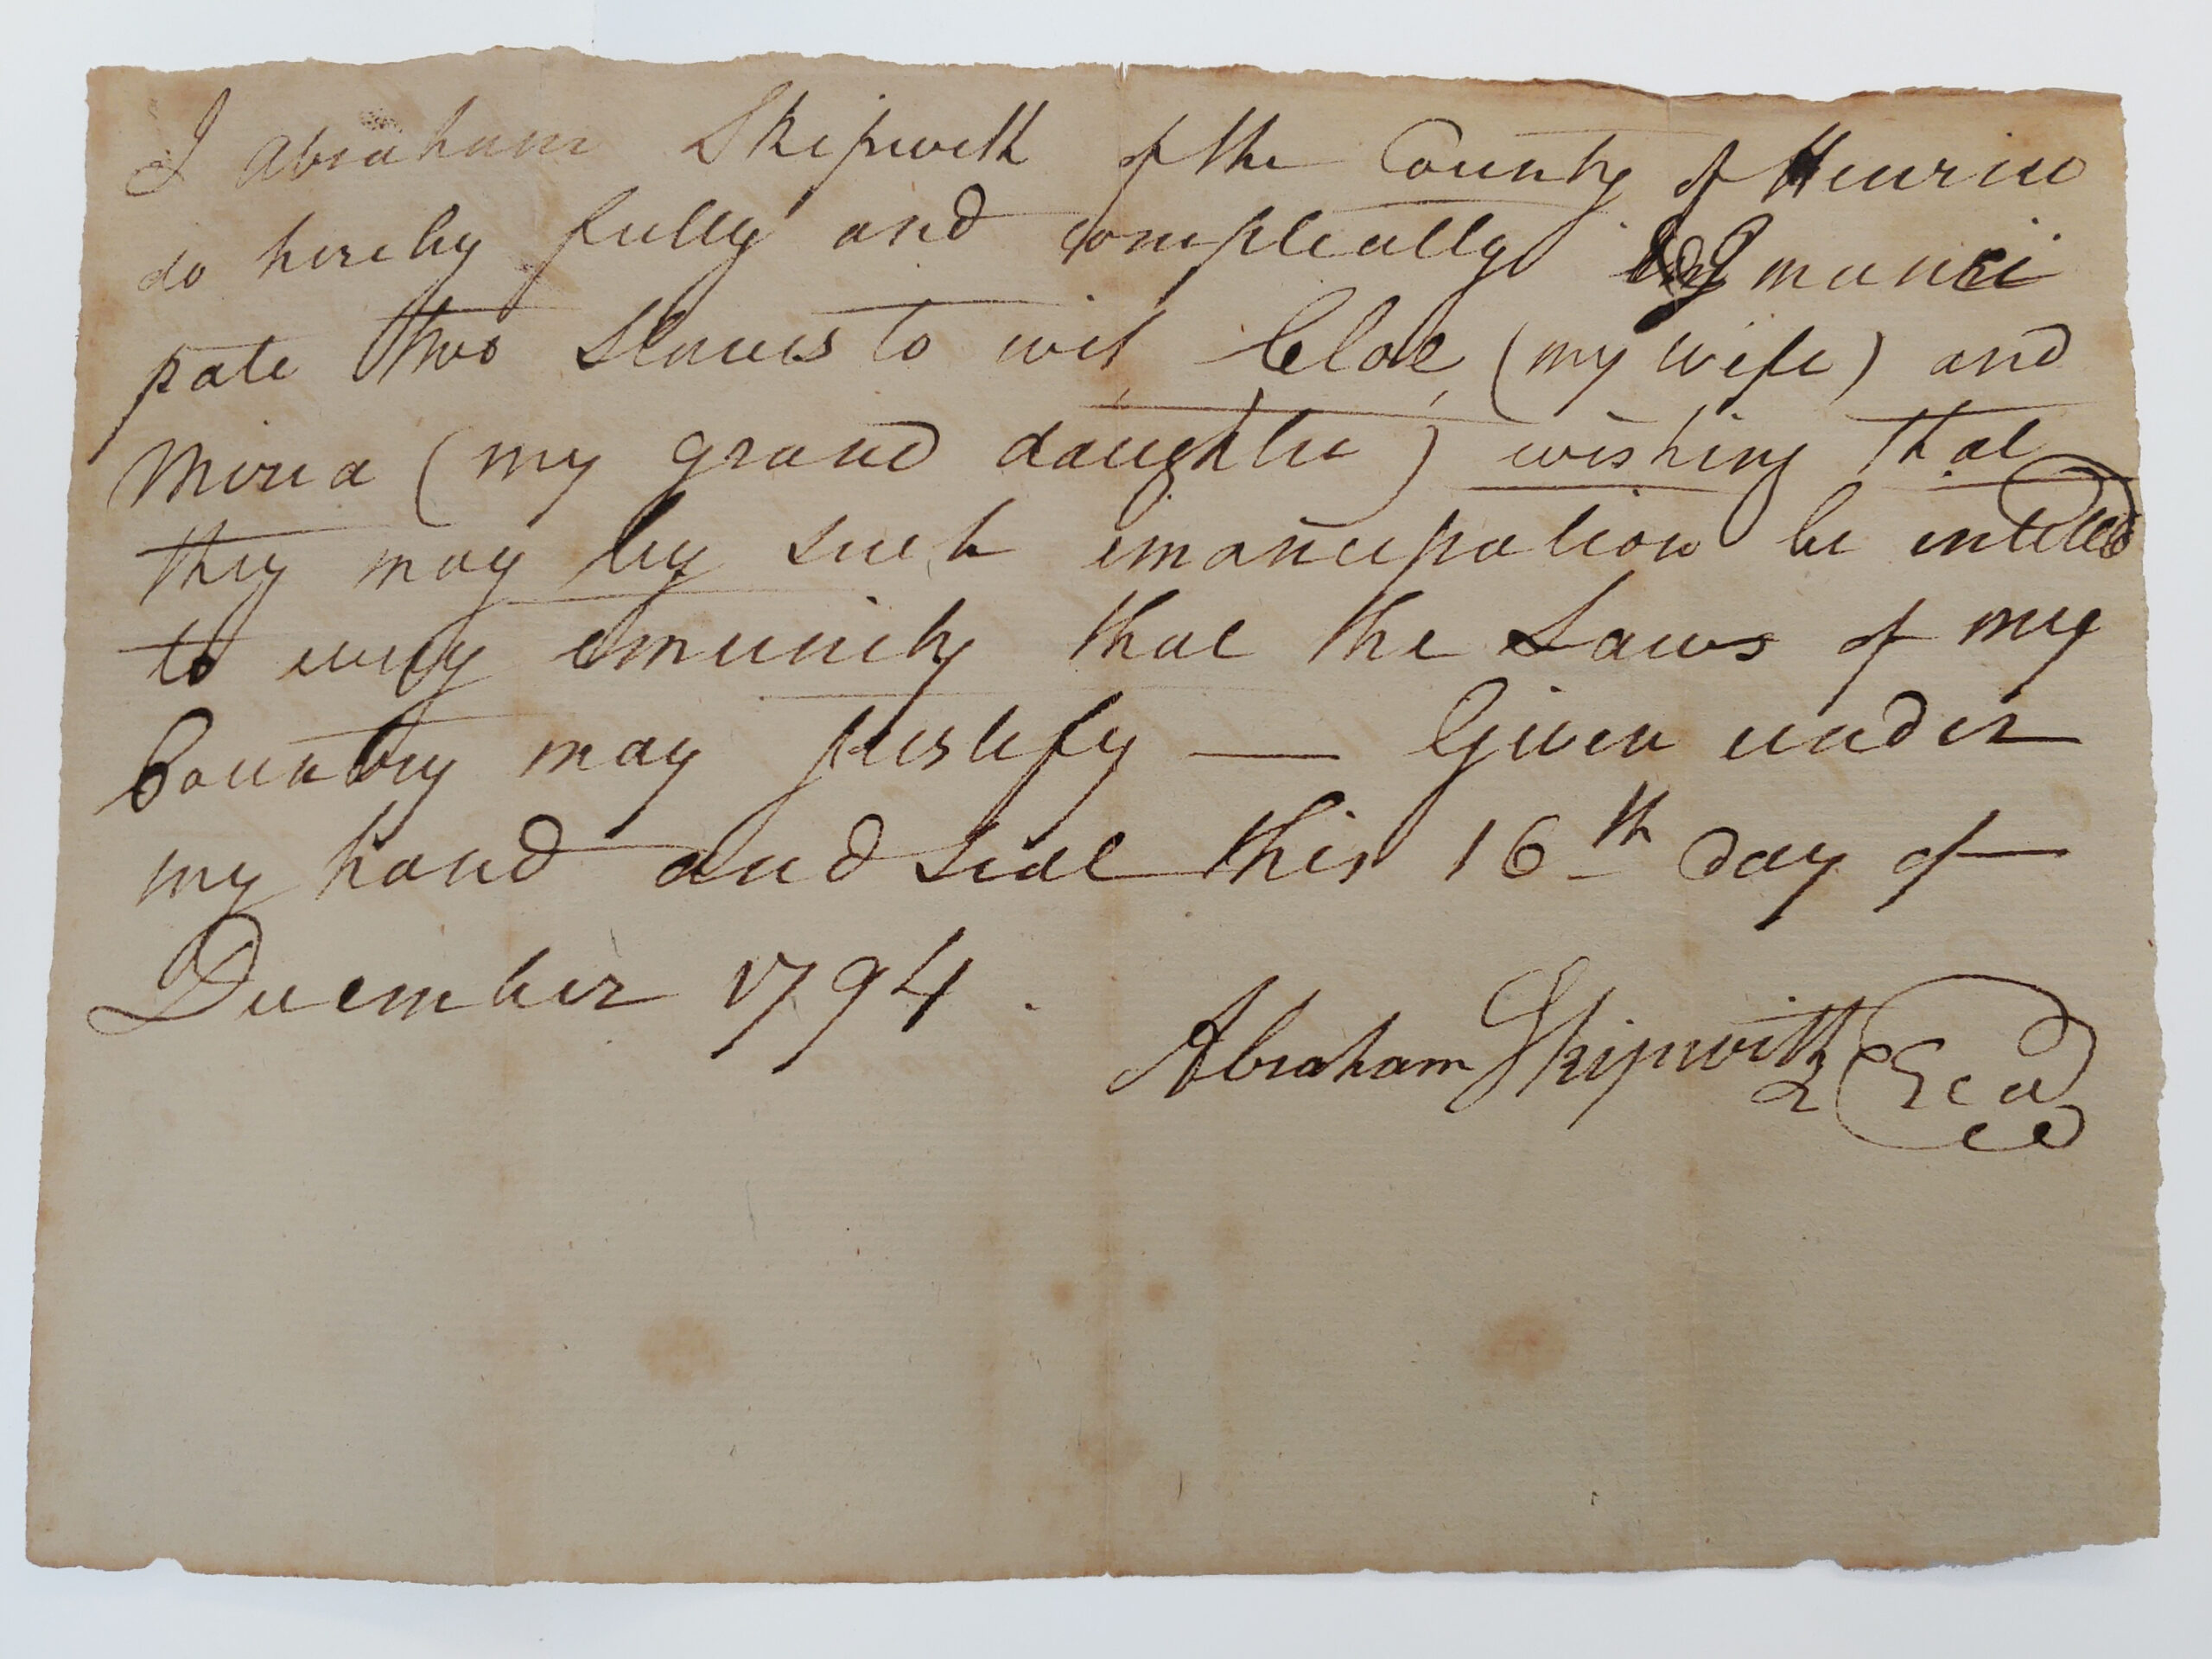 I Abraham Skipwith of the County of Henrico
do hereby fully and compleatly Emanci
pate two Slaves to wit Cloe (my wife) and
Miria (my grand daughter) wishing that
they may by such emancipation be intitled
to every emunity that the Laws of my
Country may justify — Given under
my hand and seal this 16th day of
December 1794.
Abraham Skipwith Seal